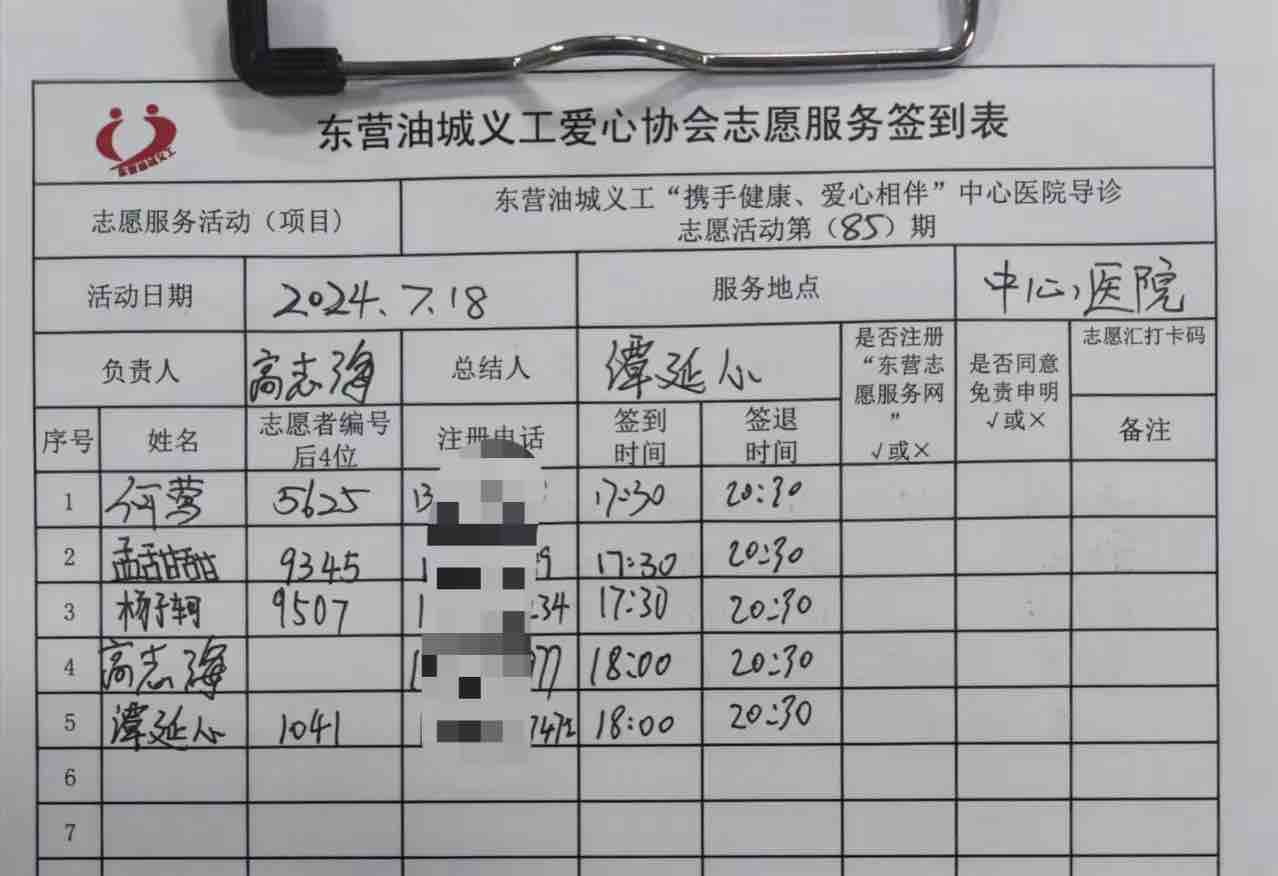 东营油城义工爱心协会志愿服务签到表
志愿服务活动（项目）
东营油城义工“携手健康、爱心相伴”中心医院导诊
志愿活动第（85）期
活动日期 2024.7.18 服务地点 中心医院
负责人 高志海 总结人 谭延心
是否注册
“东营志
愿服务网
”
√或×
是否同意
免责申明
√或×
志愿汇打卡码
序号 姓名 志愿者编号
后4位
注册电话
签到
时间
签退
时间
备注
1 何莺 5625 13 17:30 20:30
2 孟甜甜 9345 1 9 17:30 20:30
3 杨子轲 9507 1 34 17:30 20:30
4 高志海 1 77 18:00 20:30
5 谭延心 1041 7472 18:00 20:30
6
7